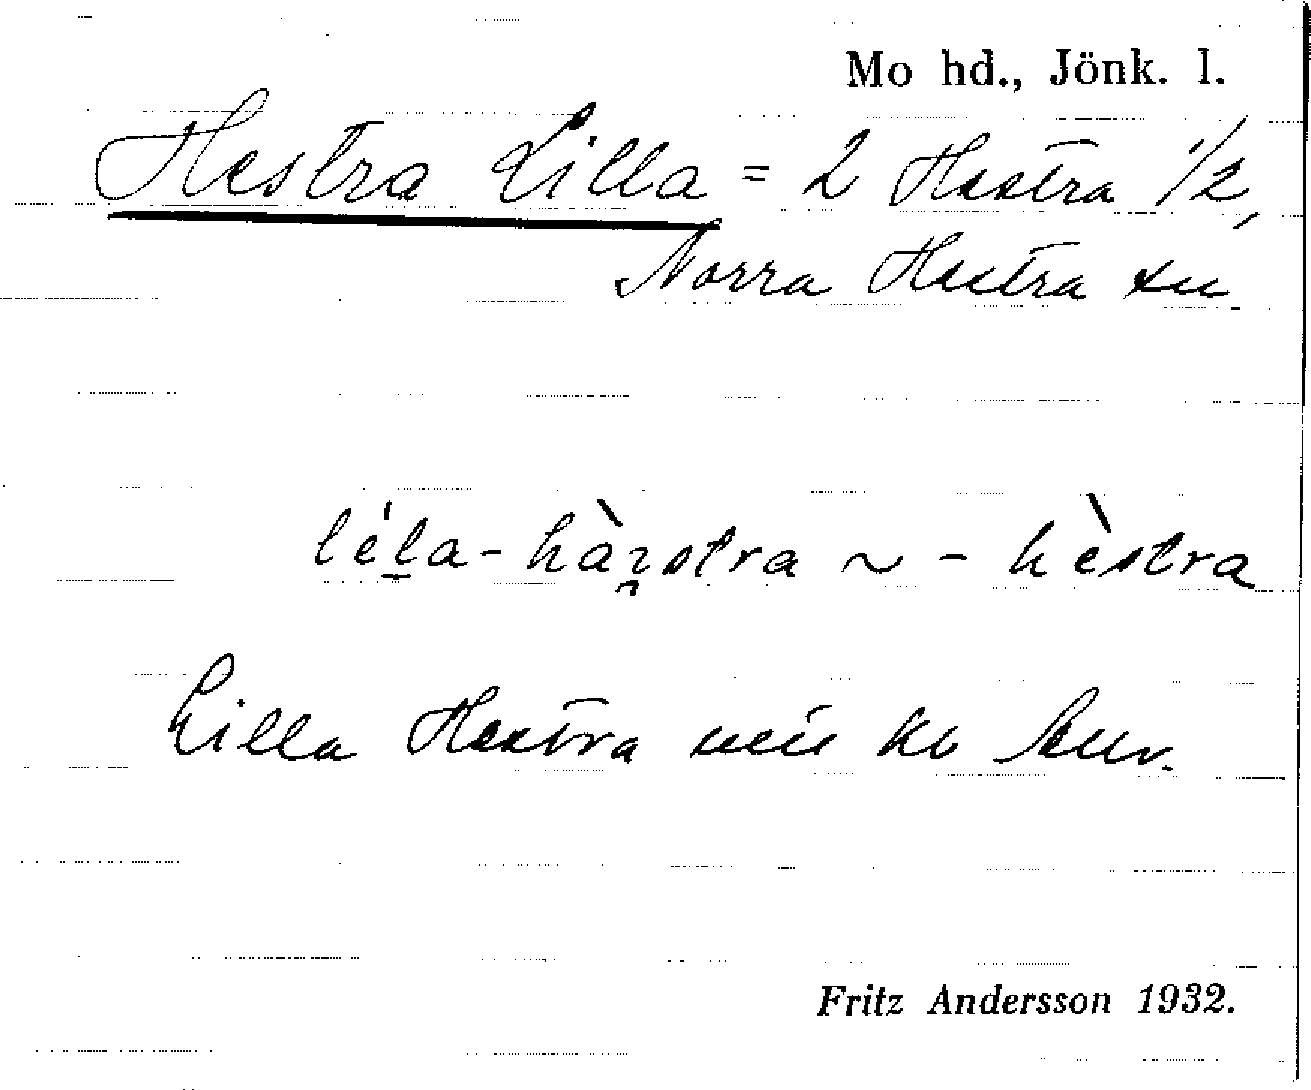 Mo hd., Jönk. l.
Hestra Lilla = 2 Hestra 1/2,
Norra Hestra sn
léla- hàstra ~ - hèstra
Lilla Hestra
Fritz Andersson 1932.